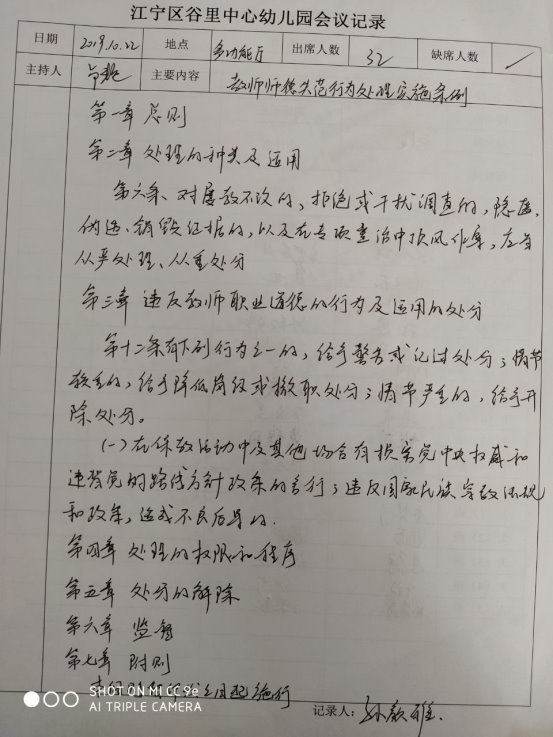 江宁区谷里中心幼儿园会议记录
日期 2019.10.22 地点 多功能厅 出席人数 32 缺席人数 /
主持人 主要内容 教师师德失范行为处理实施条例
第一章 总则
第二章 处理的种类及运用
第六条、对屡教不改的，拒绝或干扰调查的，隐匿、
伪造、销毁证据的，以及在专项整治中顶风作案，应当
从严处理、从重处分
第三章 违反教师职业道德的行为及运用的处分
第十二条有下列行为之一的，给予警告或记过处分；情节
较重的，给予降低岗级或撤职处分；情节严重的，给予开
除处分。
(一)在保教活动中及其他场合有损害党中央权威和
违背党的路线方针政策的言行；违反国家民族宗教法规
和政策，造成不良后果的.
第四章 处理的权限和程序
第五章 处分的解除
第六章 监督
第七章 附则
之日起施行
记录人：孙
SHOT ON MI CC 9e
AI TRIPLE CAMERA